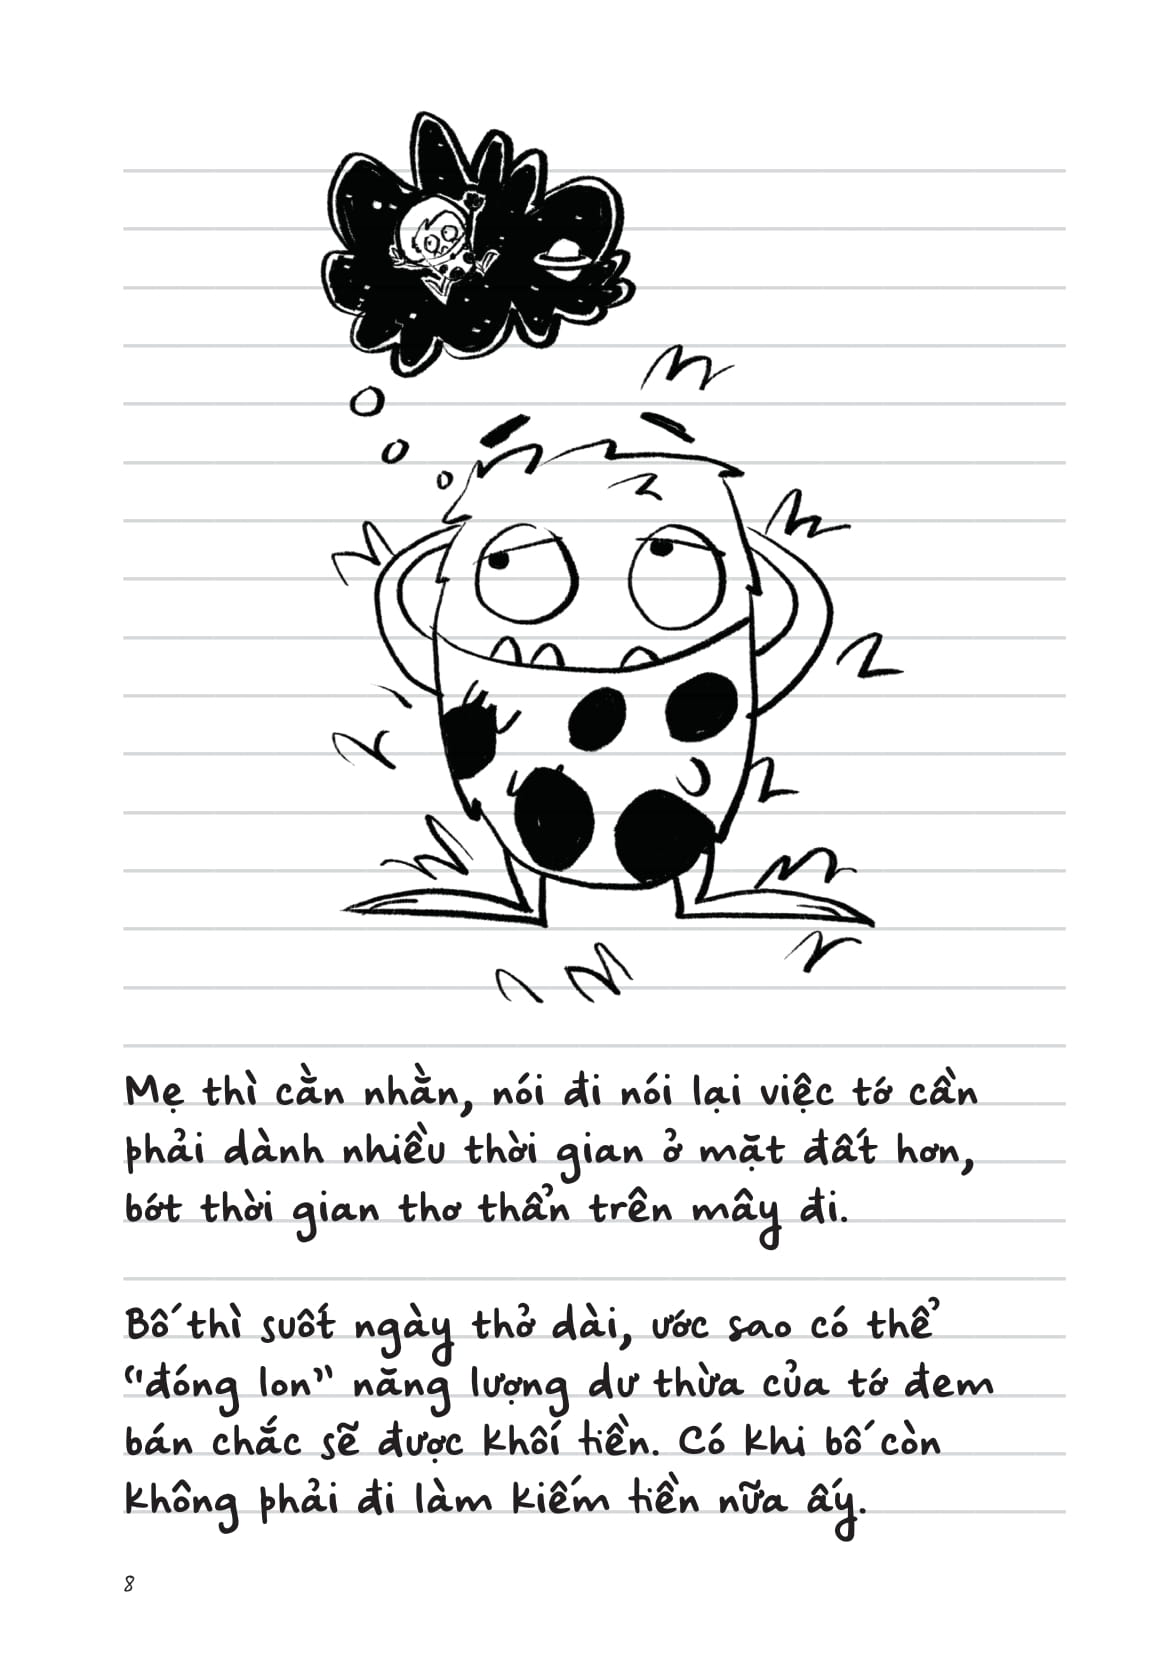 Mẹ thì cằn nhằn, nói đi nói lại việc tớ cần
phải dành nhiều thời gian ở mặt đất hơn,
bớt thời gian thơ thẩn trên mây đi.
Bố thì suốt ngày thở dài, ước sao có thể
“đóng lon” năng lượng dư thừa của tớ đem
bán chắc sẽ được khối tiền. Có khi bố còn
không phải đi làm kiếm tiền nữa ấy.
8